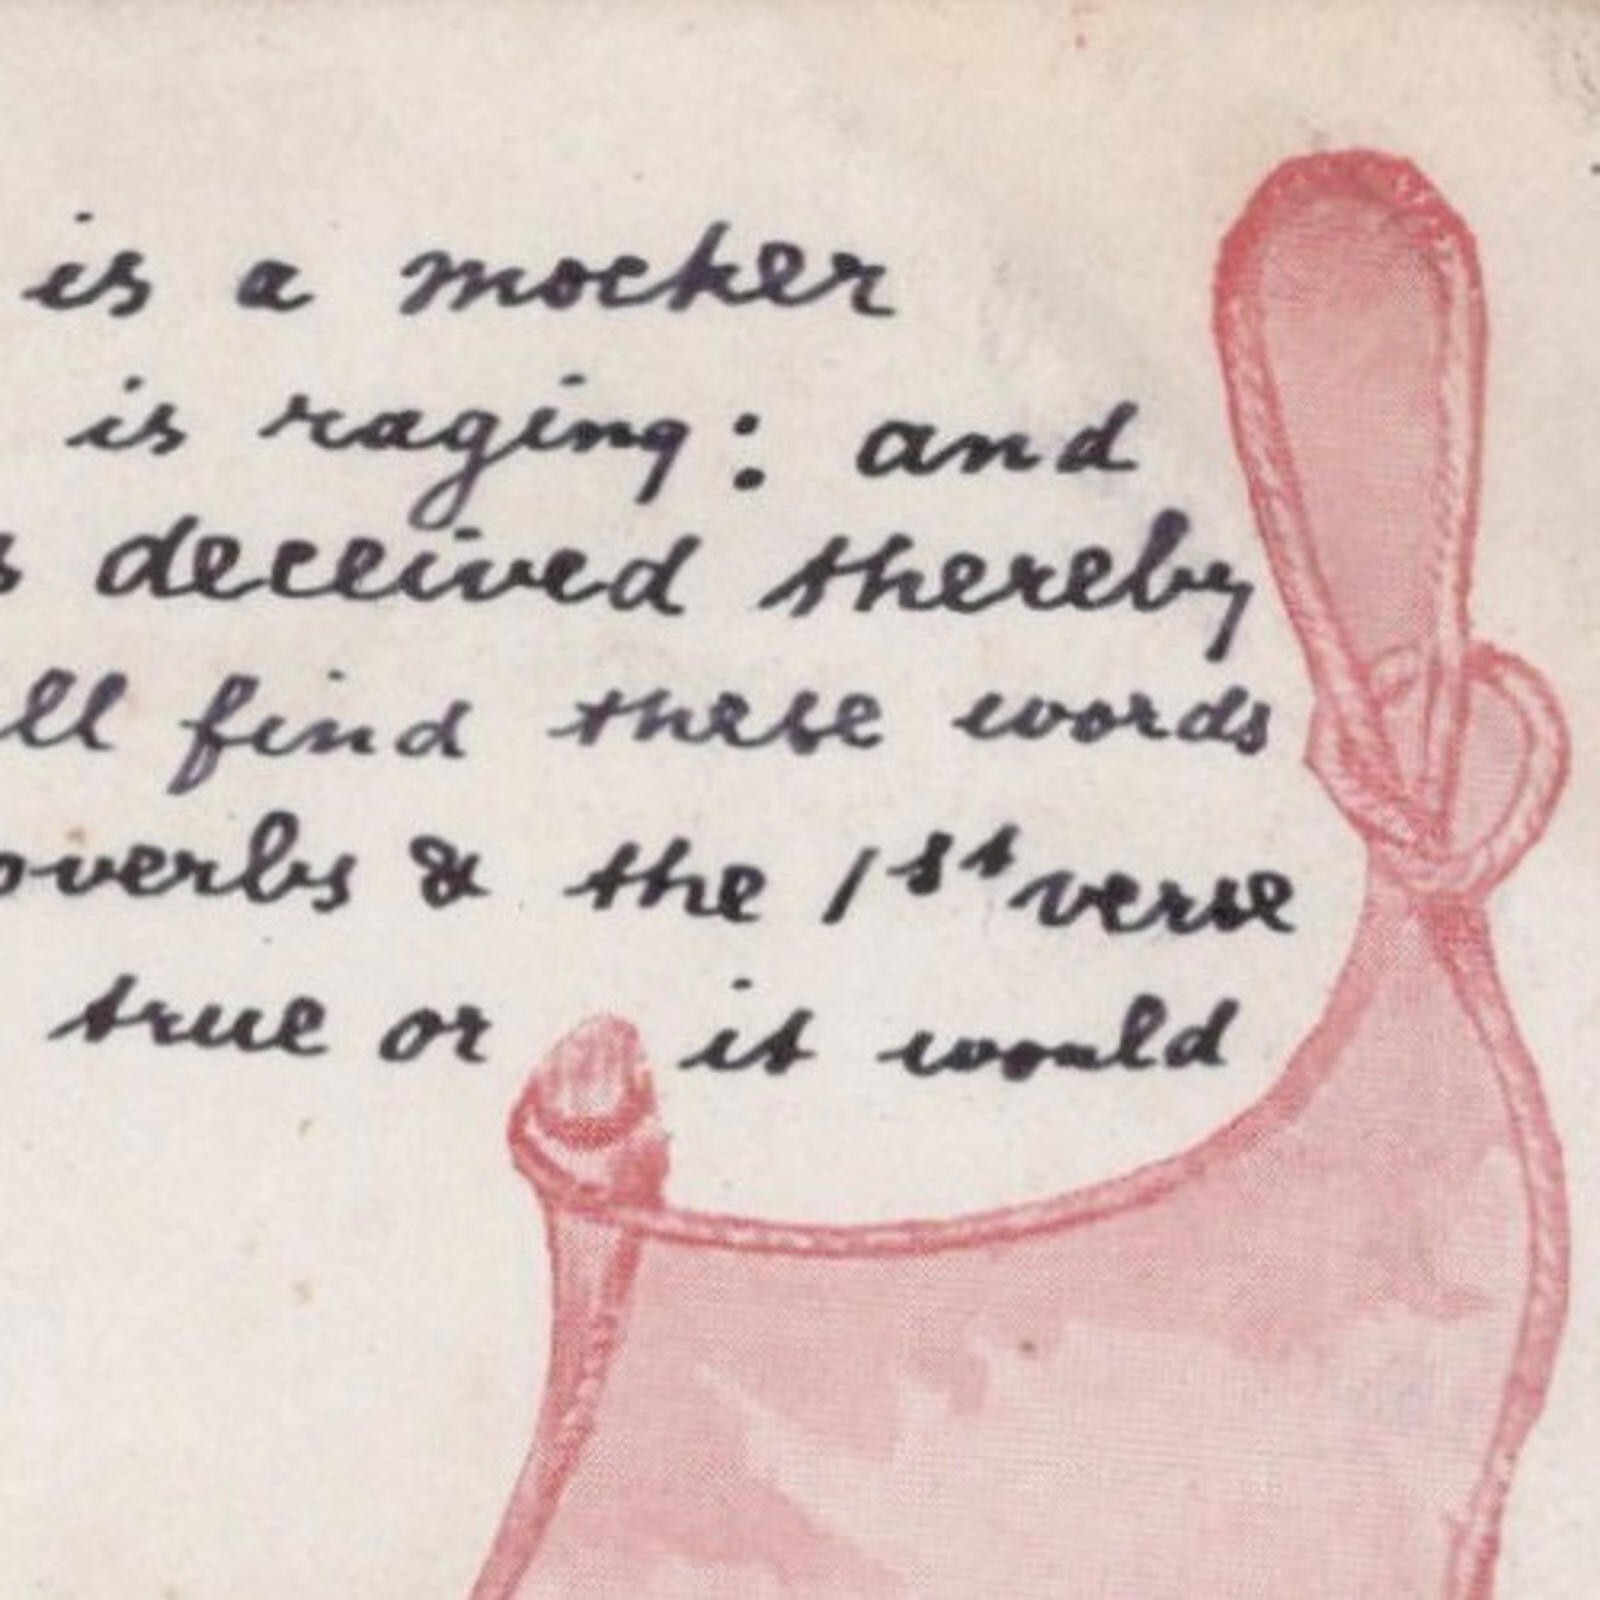 is a mocker
is raging: and
s deceived thereby
ll find these words
overbs & the 1st verse
true or it would